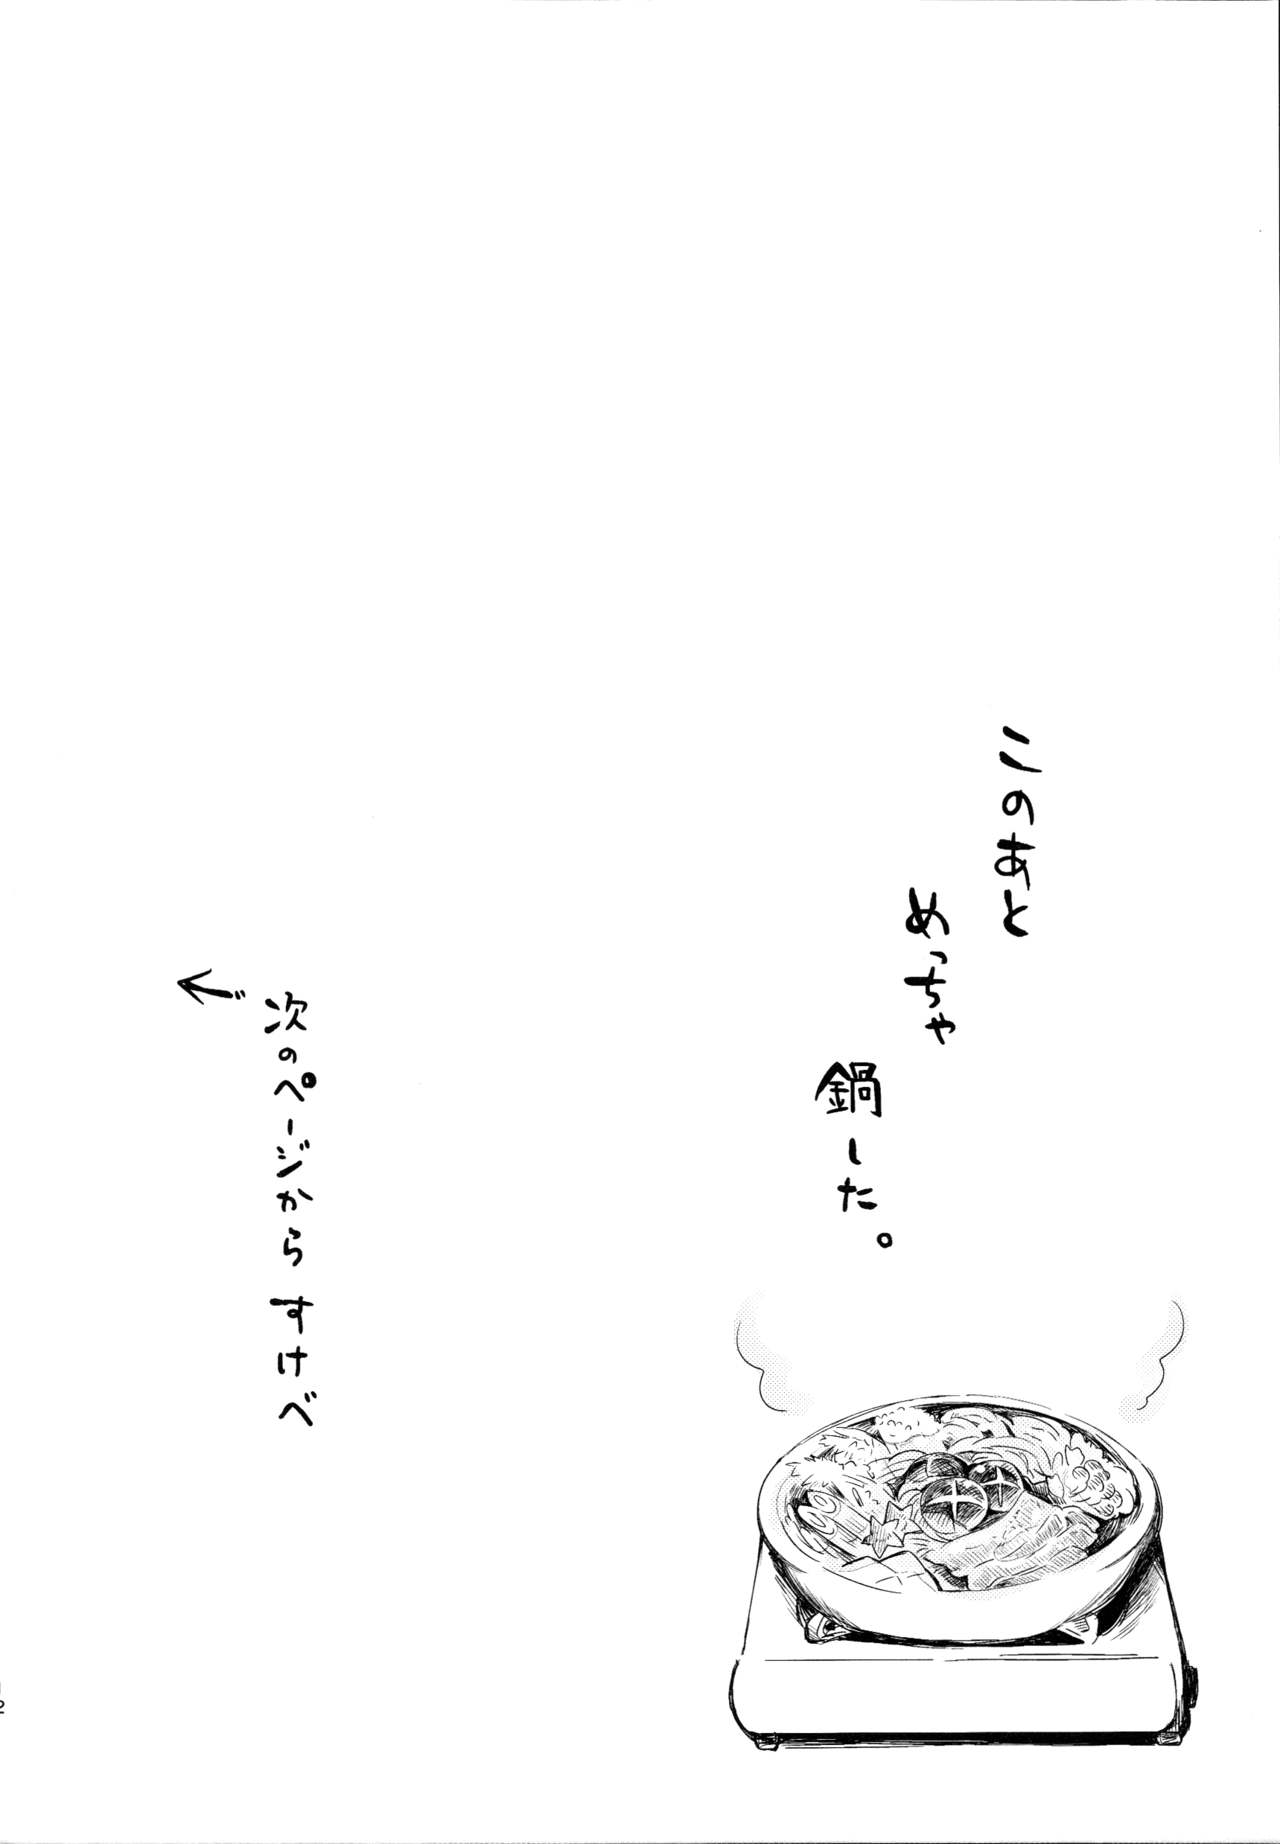 このあと
めっちゃ
鍋した。
次のページから すけべ
12